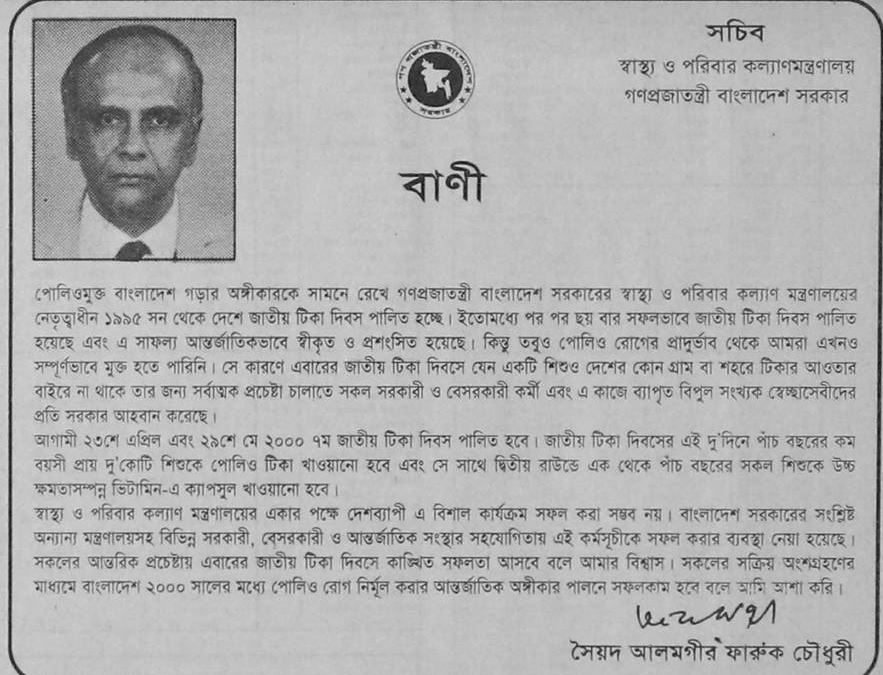 সচিব
স্বাস্থ্য ও পরিবার কল্যাণমন্ত্রণালয়
গণপ্রজাতন্ত্রী বাংলাদেশ সরকার
গণ প্রজাতন্ত্রী বাংলাদেশ
সরকার
বাণী
পোলিওমুক্ত বাংলাদেশ গড়ার অঙ্গীকারকে সামনে রেখে গণপ্রজাতন্ত্রী বাংলাদেশ সরকারের স্বাস্থ্য ও পরিবার কল্যাণ মন্ত্রণালয়ের
নেতৃত্বাধীন ১৯৯৫ সন থেকে দেশে জাতীয় টিকা দিবস পালিত হচ্ছে। ইতোমধ্যে পর পর ছয় বার সফলভাবে জাতীয় টিকা দিবস পালিত
হয়েছে এবং এ সাফল্য আন্তর্জাতিকভাবে স্বীকৃত ও প্রশংসিত হয়েছে। কিন্তু তবুও পোলিও রোগের প্রাদুর্ভাব থেকে আমরা এখনও
সম্পূর্ণভাবে মুক্ত হতে পারিনি। সে কারণে এবারের জাতীয় টিকা দিবসে যেন একটি শিশুও দেশের কোন গ্রাম বা শহরে টিকার আওতার
বাইরে না থাকে তার জন্য সর্বাত্মক প্রচেষ্টা চালাতে সকল সরকারী ও বেসরকারী কর্মী এবং এ কাজে ব্যাপৃত বিপুল সংখ্যক স্বেচ্ছাসেবীদের
প্রতি সরকার আহবান করেছে।
আগামী ২৩শে এপ্রিল এবং ২৯শে মে ২০০০ ৭ম জাতীয় টিকা দিবস পালিত হবে। জাতীয় টিকা দিবসের এই দু'দিনে পাঁচ বছরের কম
বয়সী প্রায় দু'কোটি শিশুকে পোলিও টিকা খাওয়ানো হবে এবং সে সাথে দ্বিতীয় রাউন্ডে এক থেকে পাঁচ বছরের সকল শিশুকে উচ্চ
ক্ষমতাসম্পন্ন ভিটামিন-এ ক্যাপসুল খাওয়ানো হবে।
স্বাস্থ্য ও পরিবার কল্যাণ মন্ত্রণালয়ের একার পক্ষে দেশব্যাপী এ বিশাল কার্যক্রম সফল করা সম্ভব নয়। বাংলাদেশ সরকারের সংশ্লিষ্ট
অন্যান্য মন্ত্রণালয়সহ বিভিন্ন সরকারী, বেসরকারী ও আন্তর্জাতিক সংস্থার সহযোগিতায় এই কর্মসূচীকে সফল করার ব্যবস্থা নেয়া হয়েছে।
সকলের আন্তরিক প্রচেষ্টায় এবারের জাতীয় টিকা দিবসে কাঙ্খিত সফলতা আসবে বলে আমার বিশ্বাস। সকলের সক্রিয় অংশগ্রহণের
মাধ্যমে বাংলাদেশ ২০০০ সালের মধ্যে পোলিও রোগ নির্মূল করার আন্তর্জাতিক অঙ্গীকার পালনে সফলকাম হবে বলে আমি আশা করি।
সৈয়দ আলমগীর ফারুক চৌধুরী